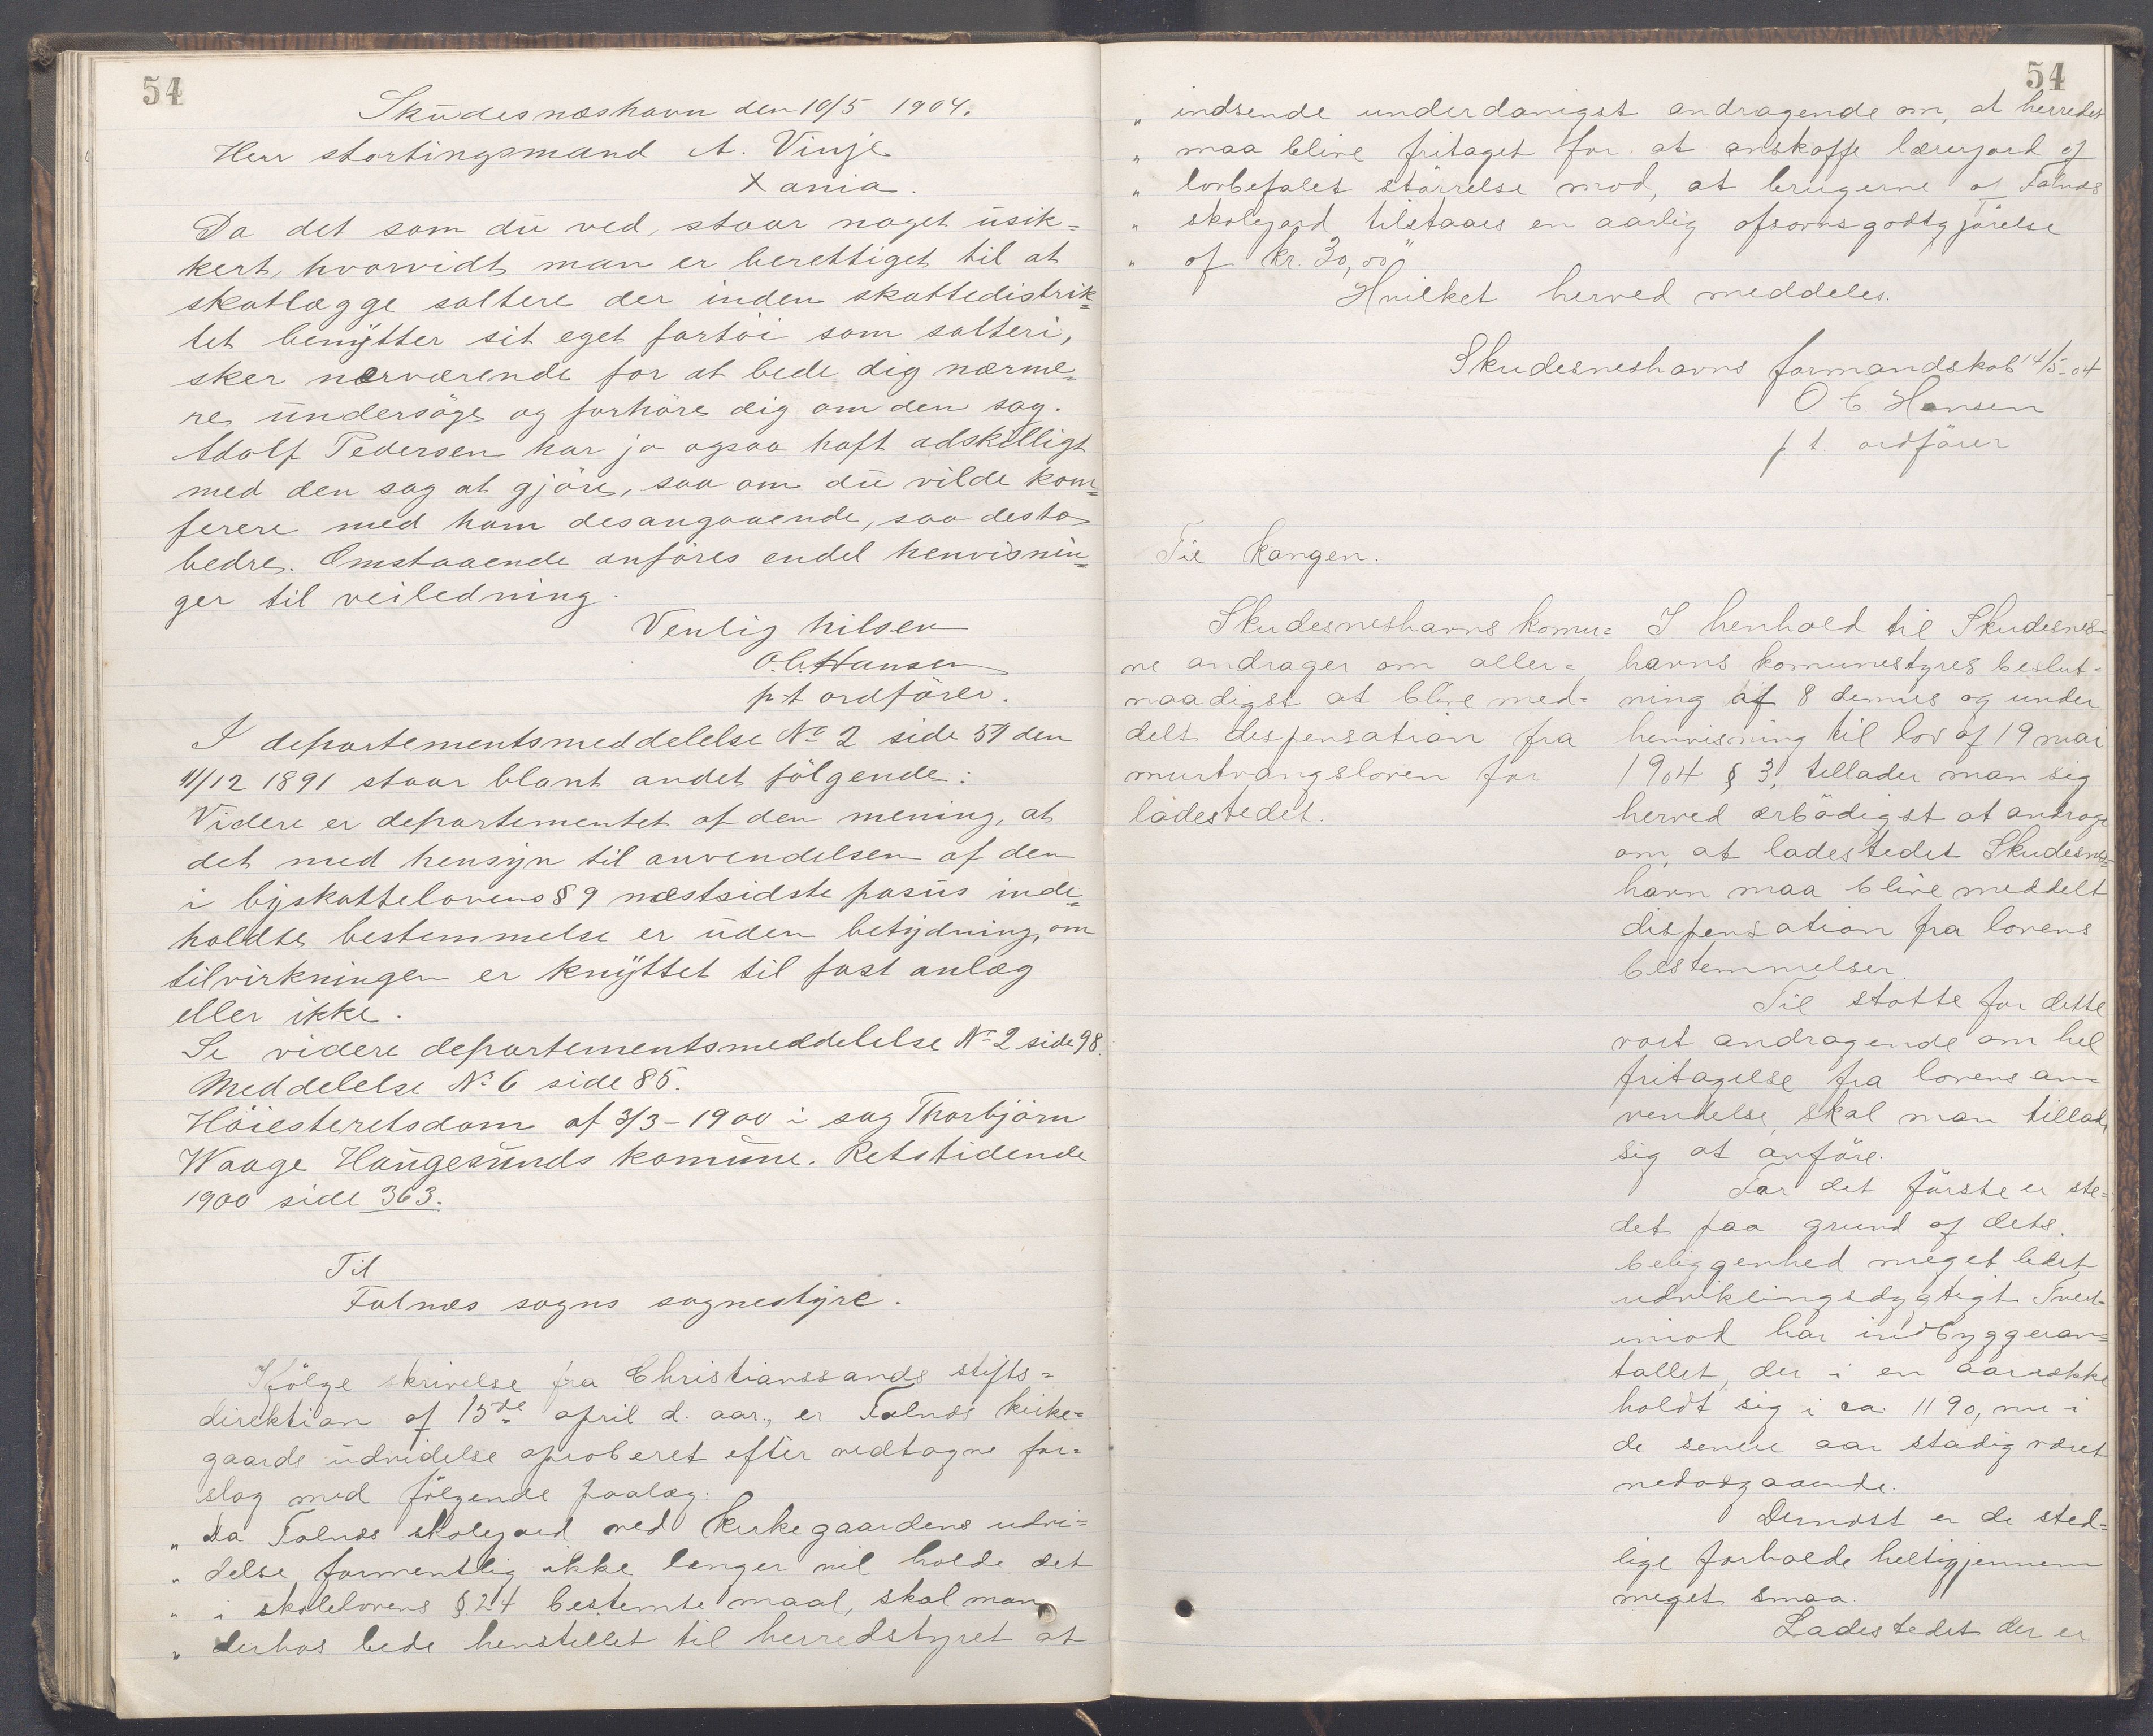 54
Skudesnæshavn den 10/5 1904.
Herr stortingsmand A. Vinje
Xania.
Da det som du ved, staar noget usik=
kert, hvorvidt man er berettiget til at
skatlægge saltere der inden skattedistrik=
tet benytter sit eget fartöi som salteri,
sker nærværende for at bede dig nærme=
re undersöge og forhöre dig om den sag.
Adolf Pedersen har jo ogsaa haft adskilligt
med den sag at gjöre, saa om du vilde kon=
ferere med ham desangaaende, saa desto
bedre. Omstaaende anföres endel henvisnin=
ger til veiledning.
Venlig hilsen
O. C. Hansen
p t ordförer.
I departementsmeddelelse No 2 side 51 den
11/12 1891 staar blant andet fölgende:
Videre er departementet af den mening, at
det med hensyn til anvendelsen af den
i byskattelovens § 9 næstsidste pasus inde=
holdte bestemmelse er uden betydning, om
tilvirkningen er knyttet til fast anlæg
eller ikke.
Se videre departementsmeddelelse No 2 side 98.
Meddelelse No 6 side 85.
Höiesteretsdom af 3/3 - 1900 i sag Thorbjörn
Waage Haugesunds komune. Retstidende
1900 side 363.
Til
Falnæs sogns sognestyre.
Ifölge skrivelse fra Christianssands stifts=
direktion af 15de april d. aar., er Falnæs kirke=
gaards udvidelse aproberet efter vedtagne for=
slag med fölgende paalæg:
" Da Falnæs skolejord ved kirkegaardens udvi=
" delse formentlig ikke længer vil holde det
" i skolelovens § 24 bestemte maal, skal man
" derhos bede henstillet til herredstyret at
54
" indsende underdanigst andragende om, at herredet
" maa blive fritaget for at anskaffe lærerjord af
" lovbefalet störrelse mod, at brugerne af Falnæs
" skolejord tilstaaes en aarlig afsavnsgodtgjörelse
" af kr. 30,00"
Hvilket herved meddeles.
Skudesneshavns formandskab 14/5-04
O C. Hansen
p t. ordförer
Til Kongen.
Skudesneshavns komu=
ne andrager om aller=
naadigst at blive med=
delt dispensation fra
murtvangsloven for
ladestedet.
I henhold til Skudesnes=
havns komunestyres beslut=
ning af 8 dennes og under
henvisning til lov af 19 mai
1904 § 3, tillader man sig
herved ærbödigst at andrage
om, at ladestedet Skudesnes=
havn maa blive meddelt
dispensation fra lovens
bestemmelser.
Til stötte for dette
vort andragende om hel
fritagelse fra lovens an=
vendelse, skal man tillade
sig at anföre.
For det förste er ste=
det paa grund af dets
beliggenhed meget lidet
udviklingsdygtigt. Tvert=
imod har indbyggeran=
tallet, der i en aarrække
holdt sig i ca. 1190, nu i
de senere aar stadig været
nedadgaaende.
Dernæst er de sted=
lige forholde heltigjennem
meget smaa.
Ladestedet der er